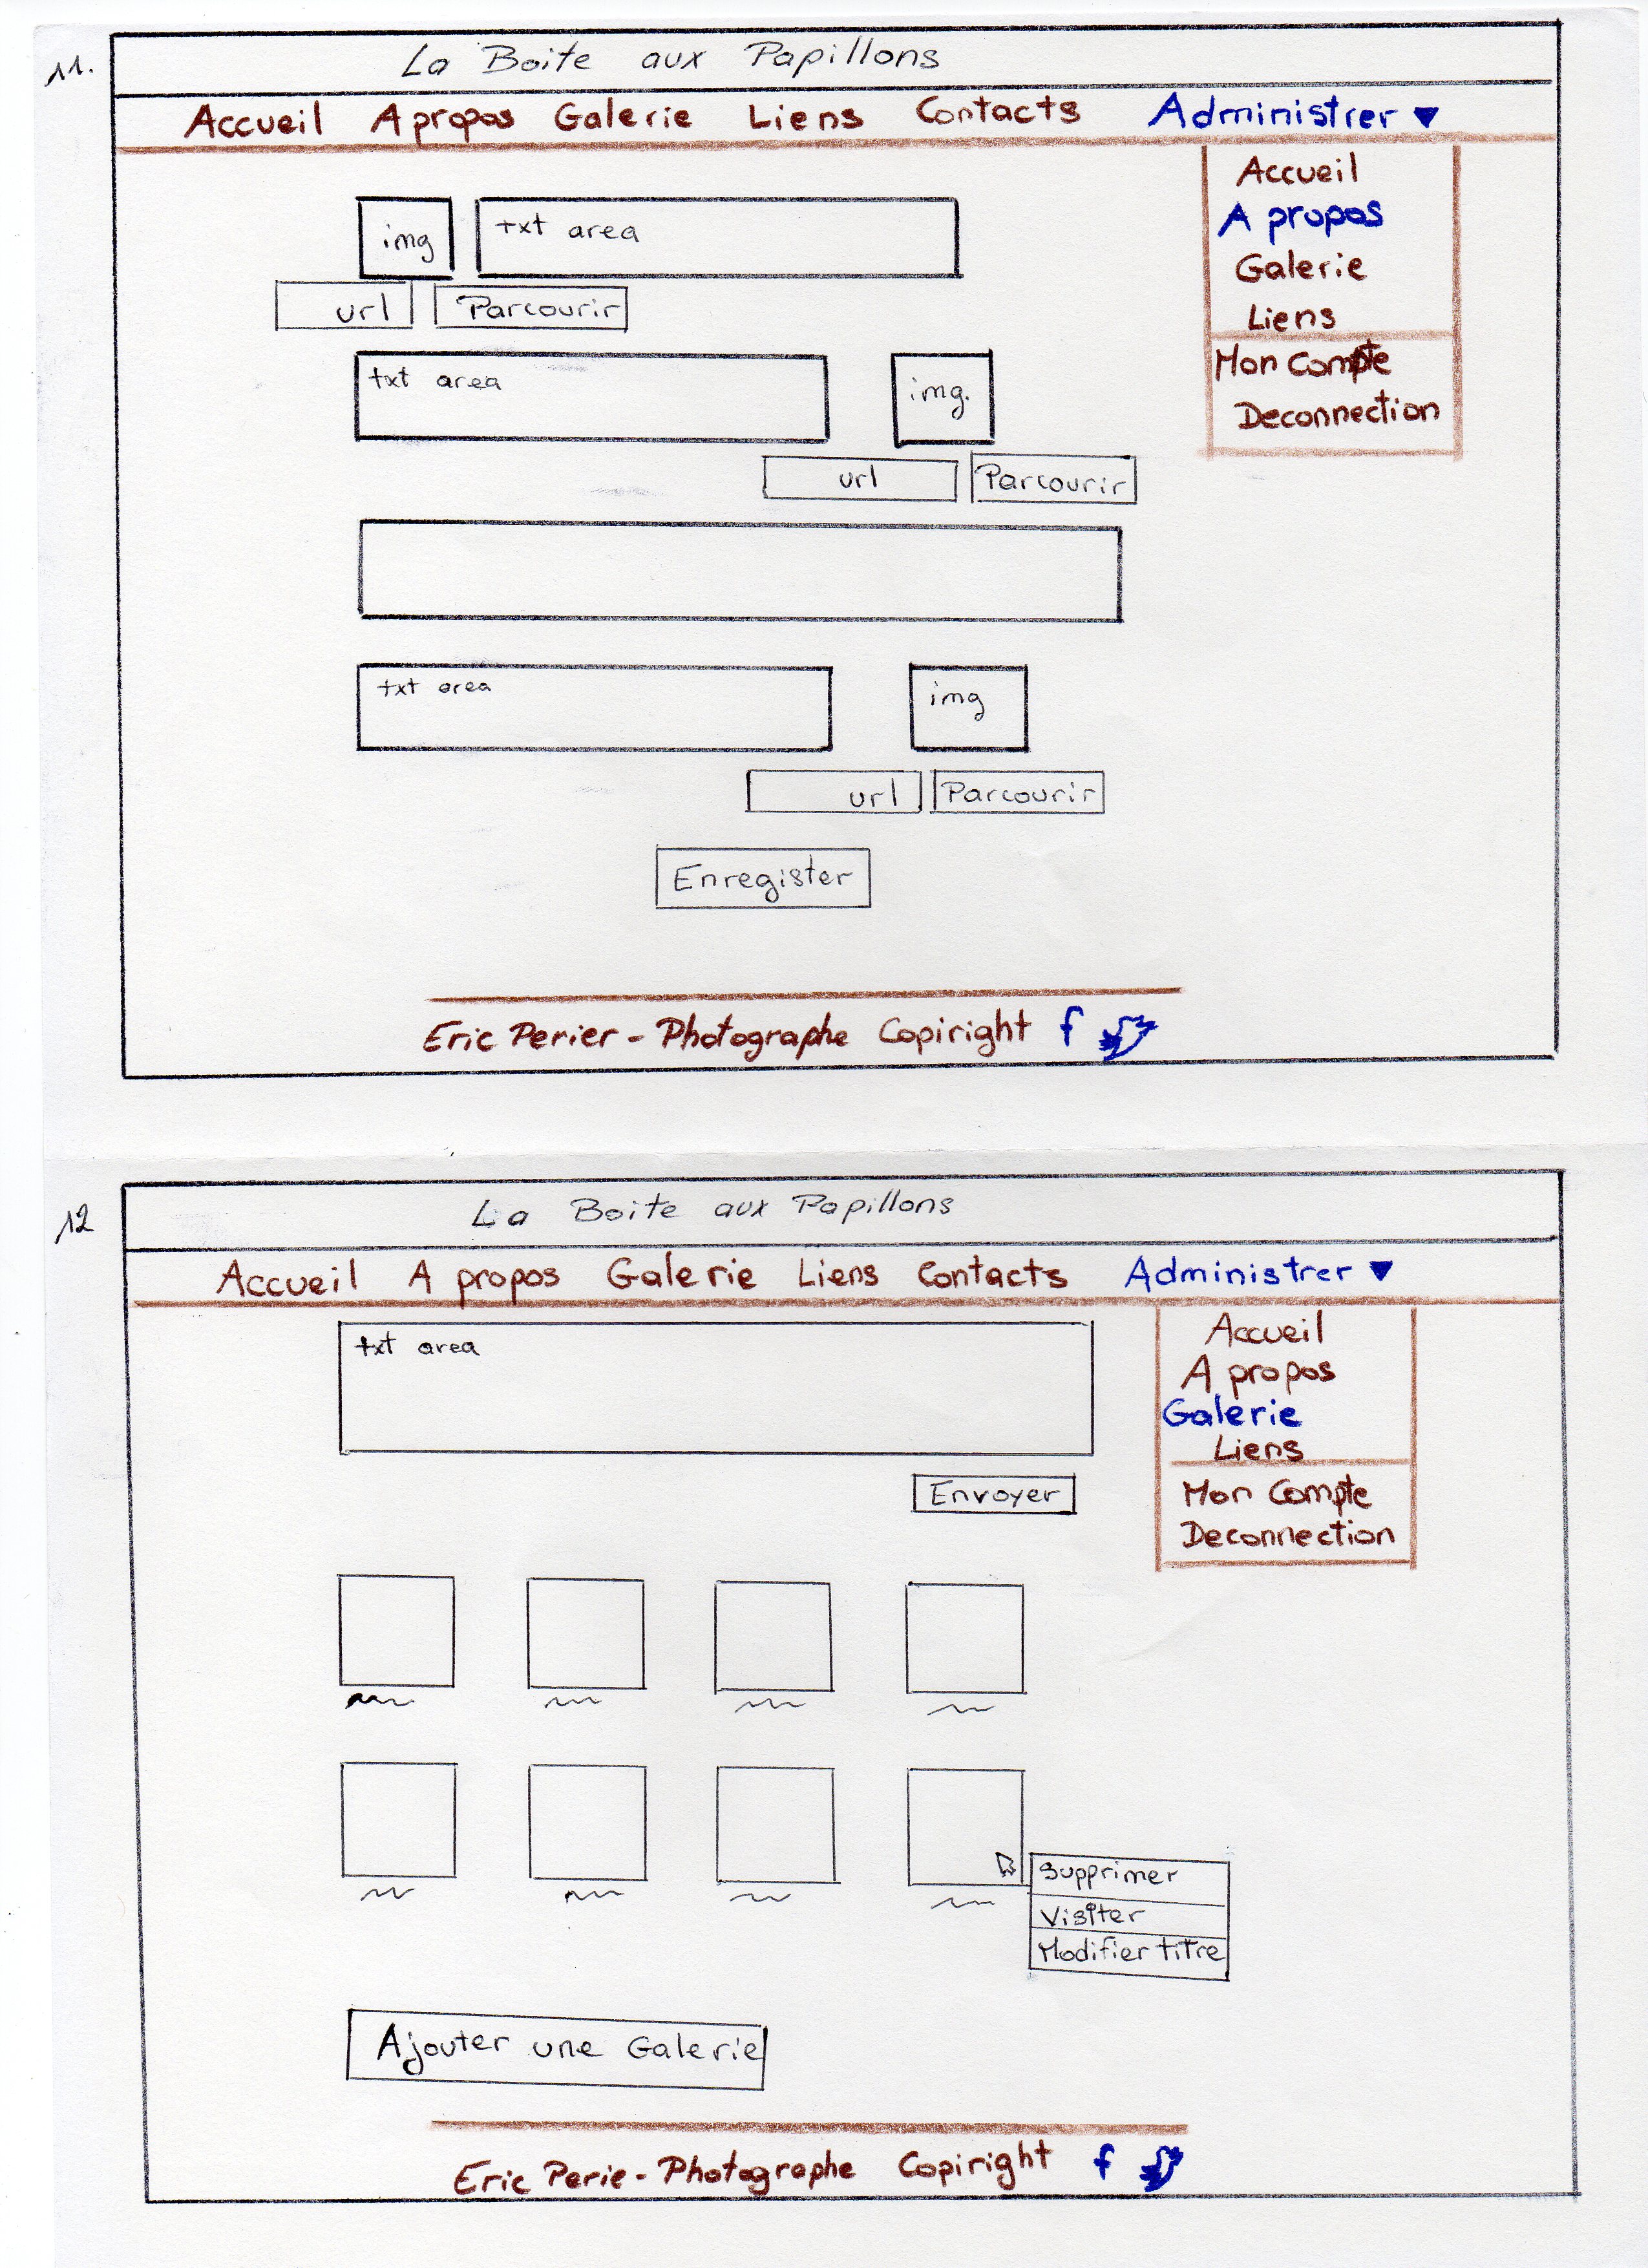 11.
La Boite aux Papillons
Accueil A propos Galerie Liens Contacts Administrer ▼
Accueil
A propos
Galerie
Liens
Mon Compte
Deconnection
img txt area
url Parcourir
txt area img.
url Parcourir
txt area img
url Parcourir
Enregister
Eric Perier - Photographe Copiright f
12
La Boite aux Papillons
Accueil A propos Galerie Liens Contacts Administrer ▼
Accueil
A propos
Galerie
Liens
Mon Compte
Deconnection
txt area
Envoyer
Supprimer
Visiter
Modifier titre
Ajouter une Galerie
Eric Perie - Photographe Copiright f